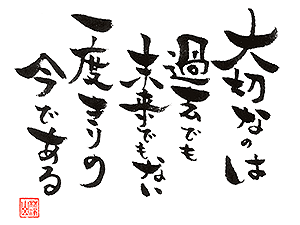 大切なのは
過去でも
未来でもない
一度きりの
今である